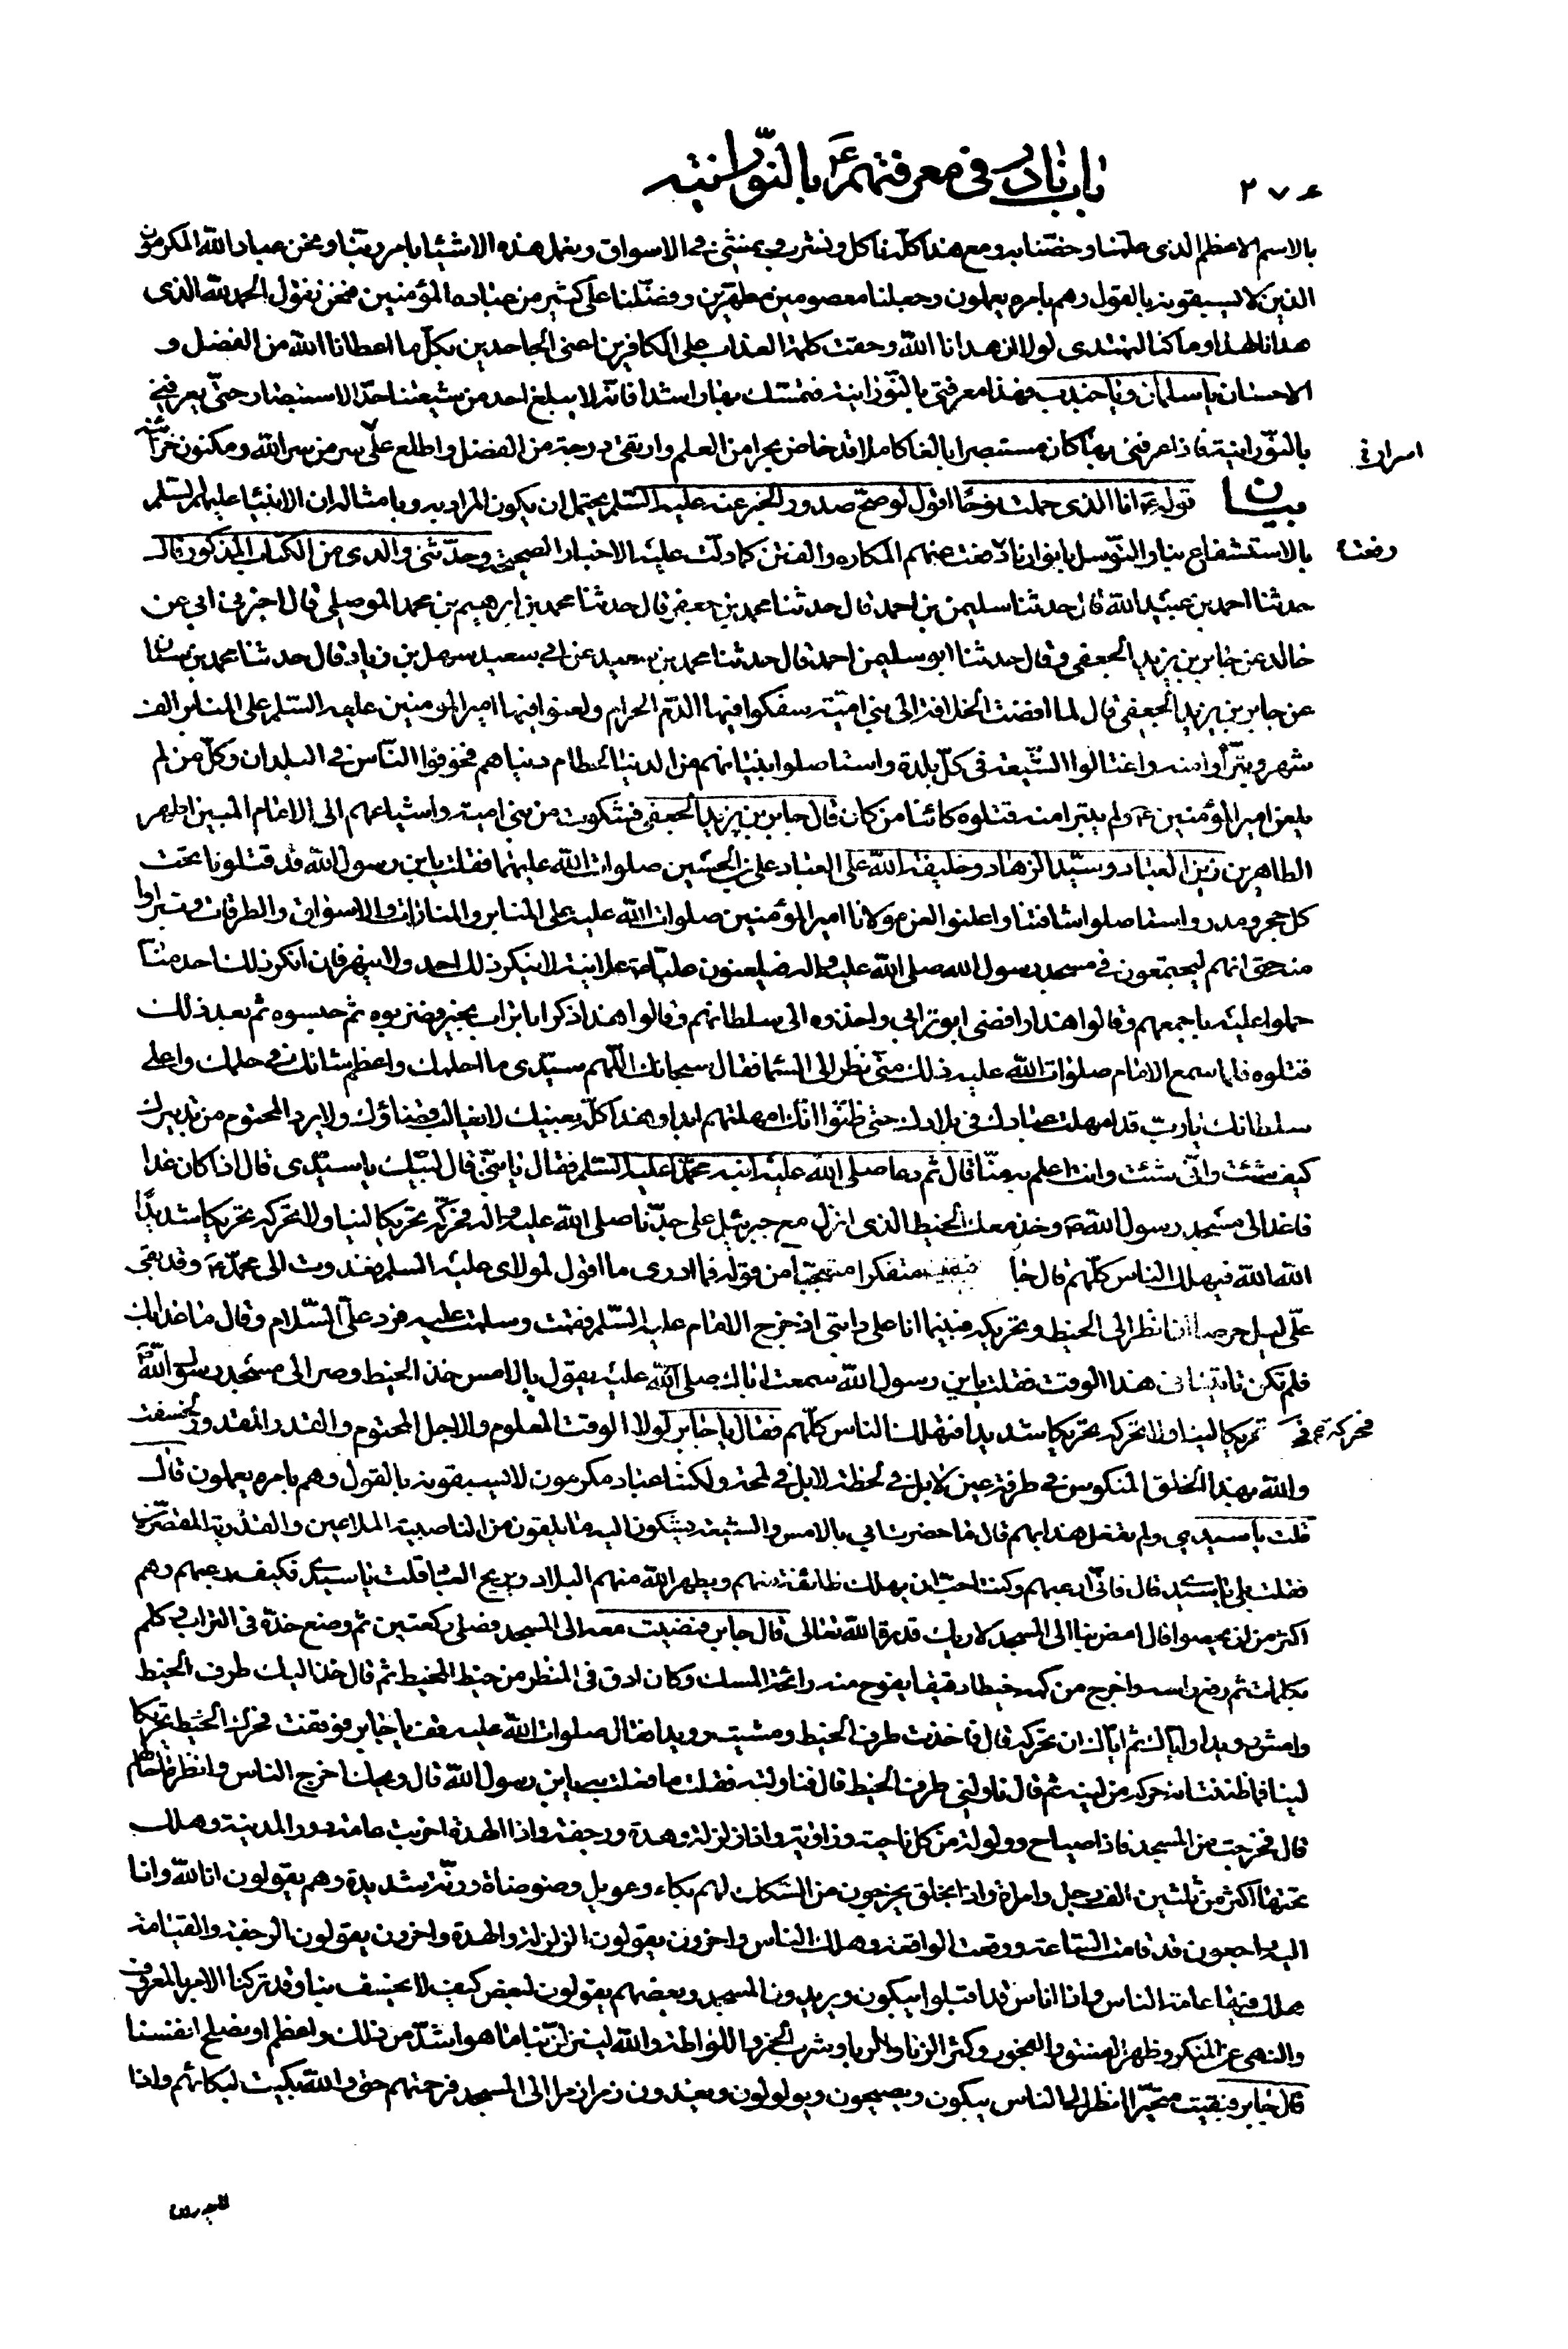 باب نادر في معرفتهم ع بالنّورانيّة
٢٧٤
بالاسم الاعظم الذى علمنا وخصّنا به ومع هذا كلّه نأكل ونشرب ونمشي في الاسواق ونعمل هذه الاشياء بامر ربّنا ونحن عباد الله المكرمون
الذين لا يسبقونه بالقول وهم بامره يعملون وجعلنا معصومين مطهّرين وفضّلنا على كثير من عباده المؤمنين فنحن نقول الحمد لله الذى
هدانا لهذا وما كنا لنهتدى لولا ان هدانا الله وحقت كلمة العذاب على الكافرين اعنى الجاحدين بكلّ ما اعطانا الله من الفضل و
الاحسان يا سلمان ويا جندب فهذا معرفتي بالنّورانية فتمسّك بها راشدا فانّه لا يبلغ احد من شيعتنا حدّ الاستبصار حتّى يعرفني
بالنّورانية فاذا عرفنى بها كان مستبصرا بالغا كاملا قد خاض بحرا من العلم وارتقى درجة من الفضل واطلع على سر من سر الله ومكنون خزائنه
بيان قوله ع انا الذى حملت نوحًا اقول لو صحّ صدور الخبر عنه عليه السّلم يحتمل ان يكون المراد به وبامثاله ان الانبياء عليهم السّلم
بالاستشفاع بنا والتّوسل بانوارنا دفعت عنهم المكاره والفتن كما دلّت عليه الاخبار الصحيحة وحدّثنى والدى من الكتاب المذكور قال
حدثنا احمد بن عبيد الله قال حدثنا سليمن بن احمد قال حدثنا محمد بن جعفر قال حدثنا محمد بن ابرهيم بن محمد الموصلي قال اخبرني ابي عن
خالد عن جابر بن يزيد الجعفي وقال حدثنا ابو سليمن احمد قال حدثنا محمد بن سعيد عن ابي سعيد سهل بن زياد قال حدثنا محمد بن سنان
عن جابر بن يزيد الجعفي قال لما افضت الخلافة الى بني اميّة سفكوا فيها الدّم الحرام ولعنوا فيها امير المومنين عليه السّلم على المنابر الف
شهر وتبرّأوا منه واغتالوا الشّيعة في كلّ بلدة واستاصلوا بنيانهم من الدنيا لحطام دنياهم فخوفوا النّاس في البلدان وكلّ من لم
يلعن امير المؤمنين ع ولم يتبرا منه قتلوه كائنا من كان قال جابر بن يزيد الجعفي فشكوت من بني امية واشياعهم الى الامام المبين اطهر
الطاهرين زين العباد وسيّد الزهاد وخليفة الله على العباد علي بن الحسين صلوات الله عليهما فقلت يابن رسول الله قد قتلونا تحت
كل حجر ومدر واستاصلوا شافتنا واعلنوا لعن مولانا امير المؤمنين صلوات الله عليه على المنابر والمنارات والاسواق والطرقات وتبراوا
منه حتى انهم ليجتمعون في مسجد رسول الله صلى الله عليه واله فيلعنون عليّا ع علانية لا ينكر ذلك احد ولا ينهر فان انكر ذلك احد منّا
حملوا عليه باجمعهم وقالوا هذا رافضى ابو ترابي واخذوه الى سلطانهم وقالوا هذا ذكر ابا تراب بخير فضربوه ثم حبسوه ثم بعد ذلك
قتلوه فلما سمع الامام صلوات الله عليه ذلك منّى نظر الى السّما فقال سبحانك اللّهم سيّدى ما احلمك واعظم شانك في حلمك واعلى
سلطانك يا ربّ قد امهلت عبادك في بلادك حتّى ظنّوا انّك امهلتهم ابدا وهذا كلّه بعينك لا يغالب قضاؤك ولا يرد المحتوم من تدبيرك
كيف شئت وانّى شئت وانت اعلم به منّا قال ثم دعا صلى الله عليه ابنه محمّدا عليه السّلم فقال يا بنّي قال لبّيك يا سيّدى قال اذا كان غدا
فاغد الى مسجد رسول الله ص وخذ معك الخيط الذى انزل مع جبرئيل على جدّنا صلى الله عليه واله فحرّكه تحريكا لينا ولا تحركه تحريكا شديدًا
الله الله فيهلك الناس كلّهم قال جابر فبقيت متفكرا متعجّبا من قوله فما ادرى ما اقول لمولاى عليه السلم فغدوت الى محمّد ع وقد بقى
علّي ليل حرصا ان انظر الى الخيط وتحريكه فبينما انا على دابتي اذ خرج الامام عليه السّلم فقمت وسلمت عليه فرد علّي السّلام وقال ما غدا بك
فلم تكن تاتينا في هذا الوقت فقلت يابن رسول الله سمعت اباك صلى الله عليه يقول بالامس خذ الخيط وصر الى مسجد رسول الله ص
فحركه تحريكا لينا ولا تحركه تحريكا شديدا فتهلك الناس كلّهم فقال يا جابر لولا الوقت المعلوم والاجل المحتوم والقدر المقدور لخسفت
والله بهذا الخلق المنكوس في طرفة عين لا بل في لحظة لا بل في لمحة ولكننا عباد مكرمون لا نسبقونه بالقول وهم بامره يعملون قال
قلت يا سيدي ولم تفعل هذا بهم قال ما حضرت ابي بالامس والشيعة يشكون اليه ما يلقون من الناصبية الملاعين والقدرية المقصّرين
فقلت بلى يا سيدي قال فانّي ارعبهم وكنت احبّ ان يهلك طائفة منهم ويطهر الله منهم البلاد ويريح العباد قلت يا سيدي فكيف ترعبهم وهم
اكثر من ان يحصوا قال امض بنا الى المسجد لاريك قدرة الله تعالى قال جابر فمضيت معه الى المسجد فصلى ركعتين ثم وضع خدّه في التراب وكلم
بكلمات ثم رفع راسه واخرج من كمه خيطا دقيقا يفوح منه رائحة المسك وكان ادق في المنظر من خيط المخيط ثم قال خذ اليك طرف الخيط
وامش رويدا واياك ثم اياك ان تحركه قال فاخذت طرف الخيط ومشيت رويدا فقال صلوات الله عليه قف يا جابر فوقفت فحرك الخيط تحريكا
لينا فما ظننت انه حركه من لينه ثم قال ناولني طرف الخيط قال فناولته فقلت ما فعلت به يابن رسول الله قال ويحك اخرج الى الناس وانظر ما حالهم
قال فخرجت من المسجد فاذا صياح وولولة من كل ناحية وزاوية واذا زلزلة وهدة ورجفة واذا الهدة اخربت عامة دور المدينة وهلك
تحتها اكثر من ثلثين الف رجل وامراة واذا بخلق يخرجون من السّكك لهم بكاء وعويل وضوضاة ورنّة شديدة وهم يقولون انا لله وانا
اليه راجعون قد قامت السّاعة ووقعت الواقعة وهلك الناس واخرون يقولون الزلزلة والهدة واخرون يقولون الرجفة والقيامة
هلك فيها عامة الناس واذا اناس قد اقبلوا يبكون ويريدون المسجد وبعضهم يقولون لبعض كيف لا يخسف بنا وقد تركنا الامر بالمعروف
والنهى عن المنكر وظهر الفسق والفجور وكثر الزنا والربا وشرب الخمر واللواطة والله لينزلنّ بنا ما هو اشدّ من ذلك واعظم او نصلح انفسنا
قال جابر فبقيت متحيّرا انظر الى الناس يبكون ويصيحون ويولولون ويغدون زمرا زمرا الى المسجد فرحمتهم حتى والله بكيت لبكائهم واذا
اسراره
رفعت
فحركه